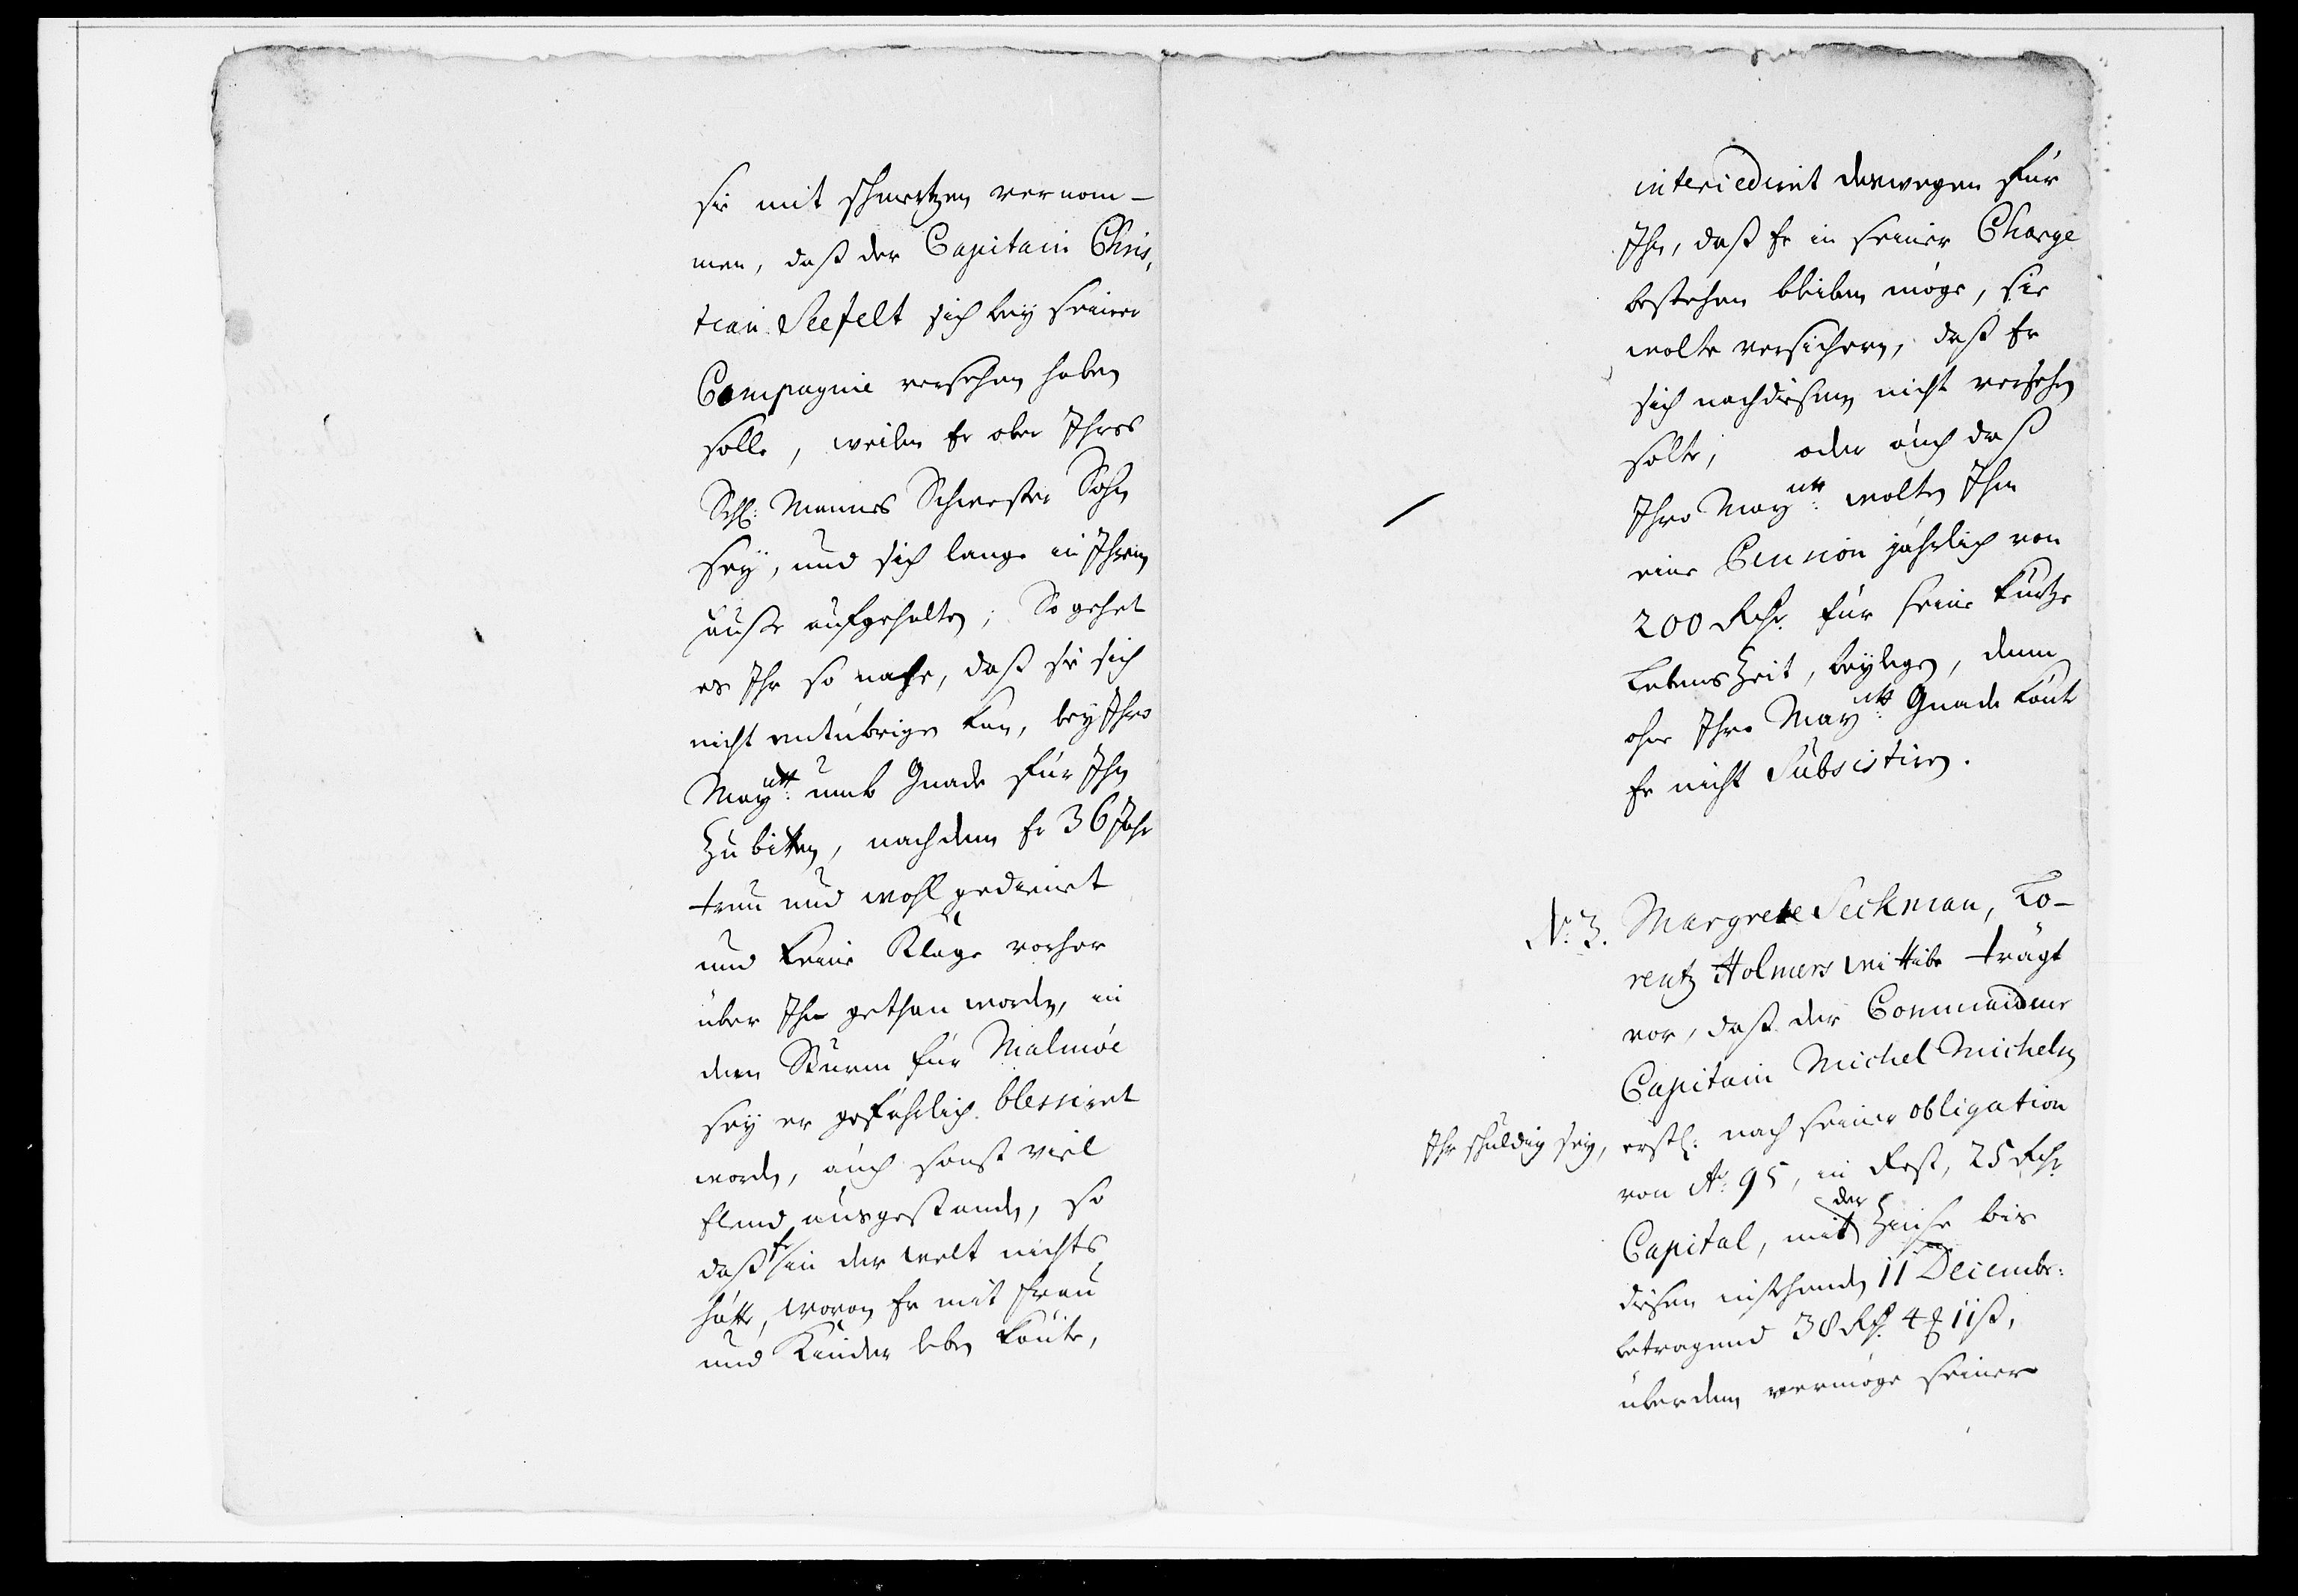 sie mit schmertzen vernom-
men, daß der Capitain Chris,
tian Seefelt sich bey seiner
Compagnie versehen haben
solle, weilen Er aber Ihres
Sehl: Mannes Schwester Sohn
sey, und sich lange in Ihrem
Hause aufgehalten; So gehet
es Ihr so nahe, daß sie sich
nicht entübrigen kan, bey Ihro
Maytt: umb Gnade für Ihn
zu bitten, nachdem Er 36 Jahr
treu und wohl gedienet
und keine Klage vorher
über Ihn gethan worden, in
dem Sturm für Malmöe
sey er gefährlich blessiret
worden, auch sonst viel
Elend ausgestanden, so
daß Er in der welt nichts
hätte, wovon Er mit Frau
und Kinder leben könte,
intercediret deswegen für
Ihn, daß Er in seiner Charge
bestehen bleiben möge, sie
wolte versichern, daß Er
sich nachdiesem nicht versehen
solte; oder auch daß
Ihro Maytt: wolten Ihm
eine Pension jährlich von
200 Rthr. für seine kurtze
Lebens Zeit, beylegen, denn
ohne Ihro Maytt: Gnade könte
Er nicht Subsistiren.
No. 3. Margrete Seckman, Lo-
rentz Holmers wittibe trägt
vor, daß der Commandeur
Capitain Michel Michelsen
Ihr schuldig sey, erstl: nach seiner obligation
von Ao: 95, in Rest, 25 Rthr
Capital, mit der Zinse bis
diesen instehenden 11 Decembr:
betragend 38 Rthr. 4 ₰ 11 ß,
überdem vermöge seiner